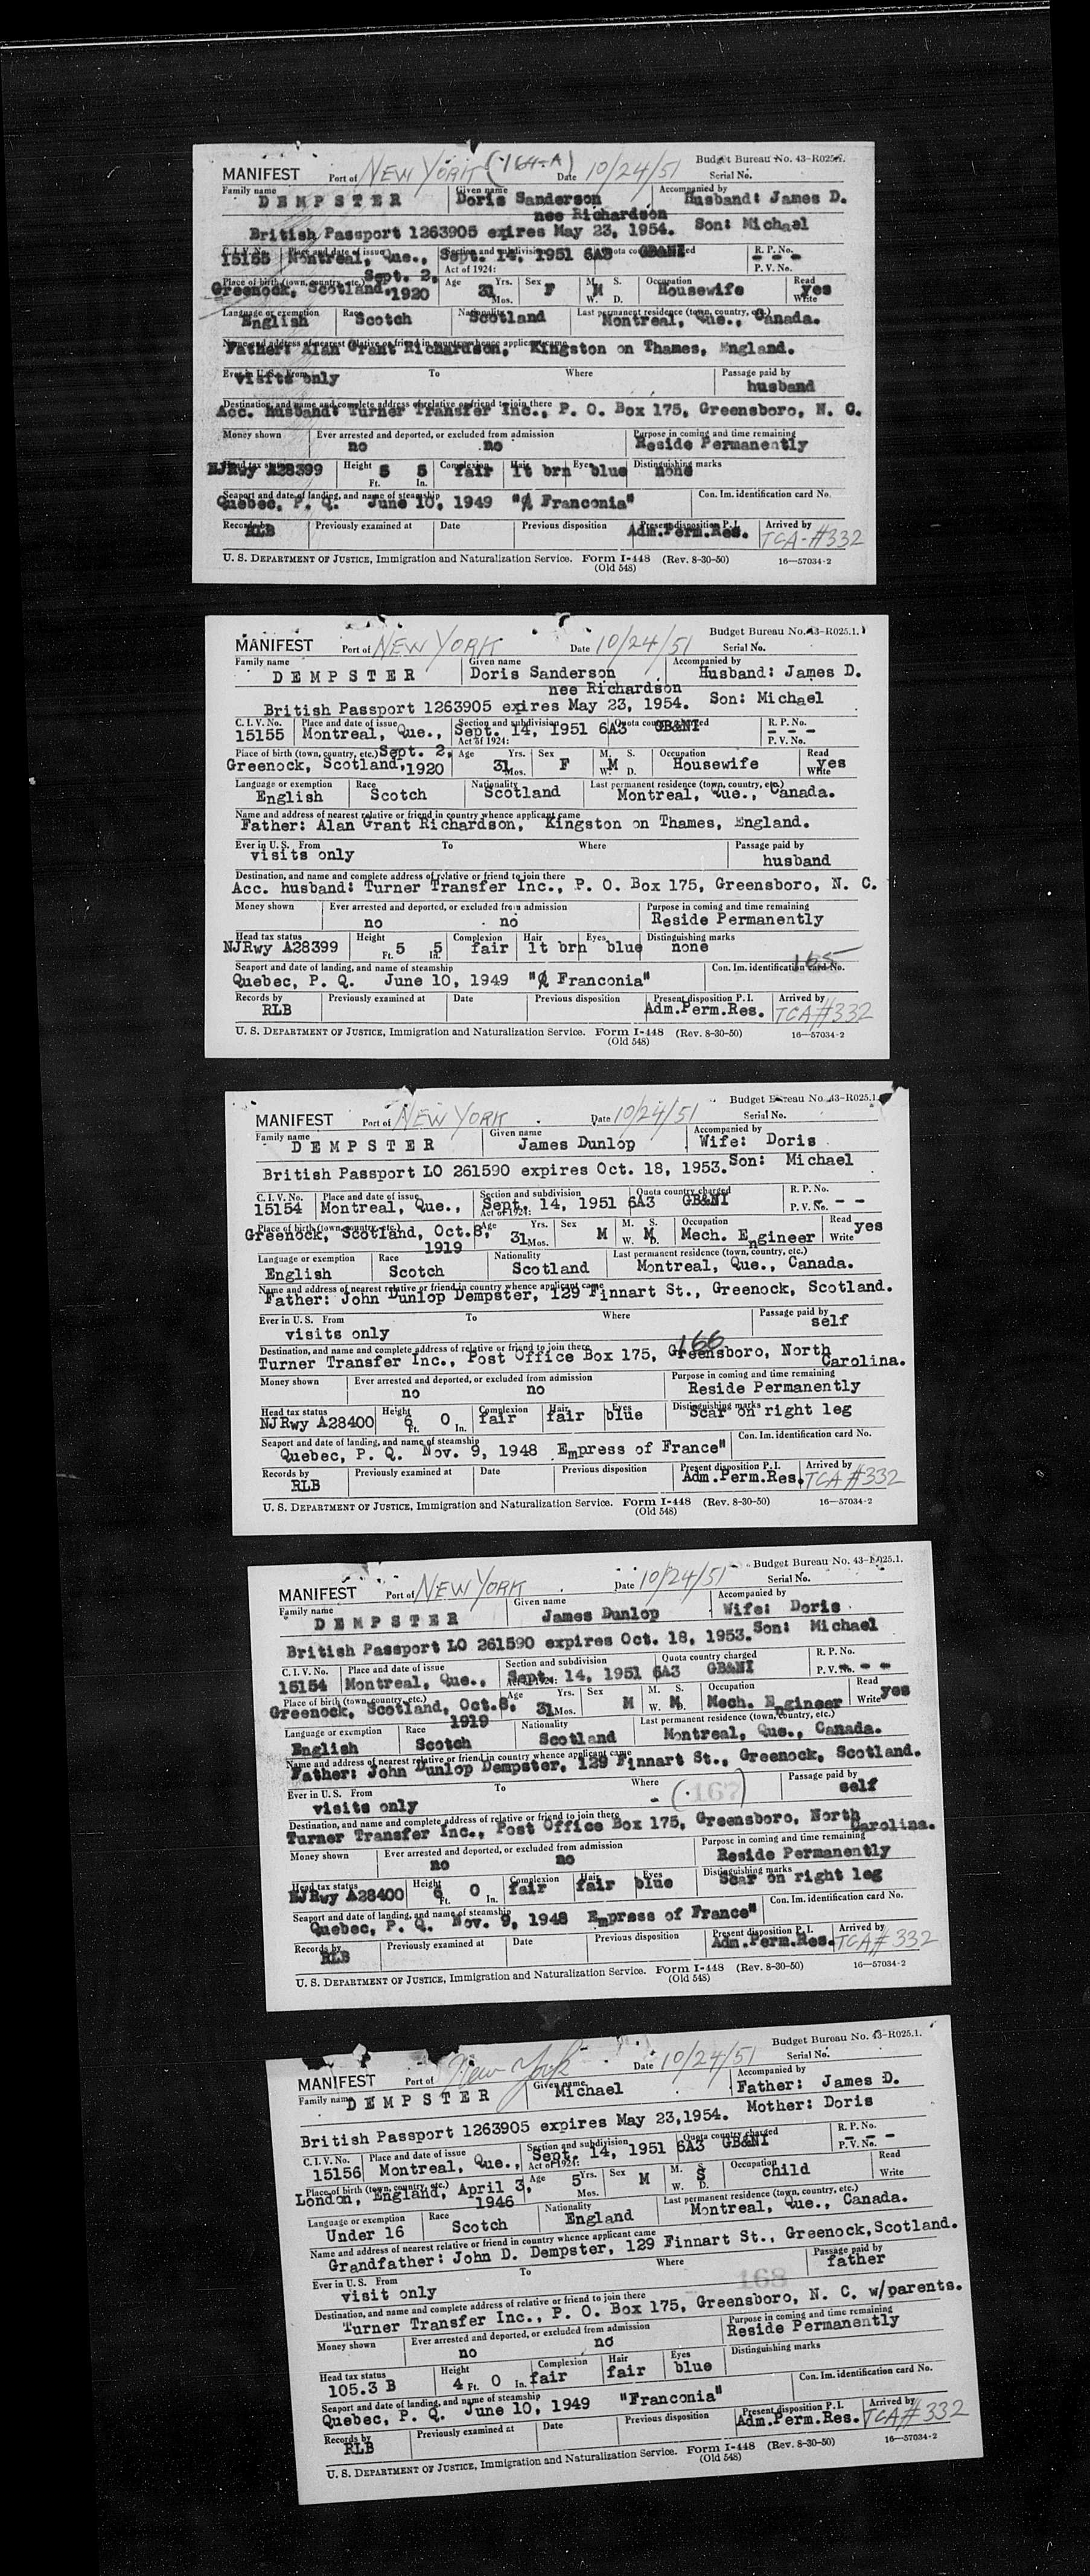 MANIFEST Port of NEW YORK (164-A) Date 10/24/51 Budget Bureau No. 43-R025. Serial No.
Family name DEMPSTER Given name Doris Sanderson Accompanied by Husband: James D.
nee Richardson
British Passport 1263905 expires May 23, 1954. Son: Michael
C. I. V. No. 15155 Place and date of issue Montreal, Que., Sept. 14, 1951 Section and subdivision Act of 1924: 6A3 Quota country charged GB&NI R. P. No. - - - P. V. No.
Place of birth (town, country, etc.) Greenock, Scotland, Sept. 2, 1920 Age 31 Yrs. Mos. Sex F M. S. W. D. M Occupation Housewife Read yes Write
Language or exemption English Race Scotch Nationality Scotland Last permanent residence (town, country, etc.) Montreal, Que., Canada.
Name and address of nearest relative or friend in country whence applicant came Father: Alan Grant Richardson, Kingston on Thames, England.
Ever in U. S. From visits only To Where Passage paid by husband
Destination, and name and complete address of relative or friend to join there
Acc. husband: Turner Transfer Inc., P. O. Box 175, Greensboro, N. C.
Money shown Ever arrested and deported, or excluded from admission no no Purpose in coming and time remaining Reside Permanently
Head tax status NJRwy A28399 Height 5 Ft. 5 In. Complexion fair Hair lt brn Eyes blue Distinguishing marks none
Seaport and date of landing, and name of steamship Quebec, P. Q. June 10, 1949 "Franconia" Con. Im. identification card No.
Records by RLB Previously examined at Date Previous disposition Present disposition P. I. Adm.Perm.Res. Arrived by TCA-#332
U. S. DEPARTMENT OF JUSTICE, Immigration and Naturalization Service. Form I-448 (Rev. 8-30-50) 16—57034-2
(Old 548)
MANIFEST Port of NEW YORK Date 10/24/51 Budget Bureau No. 43-R025.1. Serial No.
Family name DEMPSTER Given name Doris Sanderson Accompanied by Husband: James D.
nee Richardson
British Passport 1263905 expires May 23, 1954. Son: Michael
C. I. V. No. 15155 Place and date of issue Montreal, Que., Sept. 14, 1951 Section and subdivision Act of 1924: 6A3 Quota country charged GB&NI R. P. No. - - - P. V. No.
Place of birth (town, country, etc.) Greenock, Scotland, Sept. 2, 1920 Age 31 Yrs. Mos. Sex F M. S. W. D. M Occupation Housewife Read yes Write
Language or exemption English Race Scotch Nationality Scotland Last permanent residence (town, country, etc.) Montreal, Que., Canada.
Name and address of nearest relative or friend in country whence applicant came
Father: Alan Grant Richardson, Kingston on Thames, England.
Ever in U. S. From visits only To Where Passage paid by husband
Destination, and name and complete address of relative or friend to join there
Acc. husband: Turner Transfer Inc., P. O. Box 175, Greensboro, N. C.
Money shown Ever arrested and deported, or excluded from admission no no Purpose in coming and time remaining Reside Permanently
Head tax status NJRwy A28399 Height 5 Ft. 5 In. Complexion fair Hair lt brn Eyes blue Distinguishing marks none
165
Seaport and date of landing, and name of steamship Quebec, P. Q. June 10, 1949 "Franconia" Con. Im. identification card No.
Records by RLB Previously examined at Date Previous disposition Present disposition P. I. Adm.Perm.Res. Arrived by TCA#332
U. S. DEPARTMENT OF JUSTICE, Immigration and Naturalization Service. Form I-448 (Rev. 8-30-50) 16—57034-2
(Old 548)
MANIFEST Port of NEW YORK Date 10/24/51 Budget Bureau No. 43-R025.1. Serial No.
Family name DEMPSTER Given name James Dunlop Accompanied by Wife: Doris
British Passport LO 261590 expires Oct. 18, 1953. Son: Michael
C. I. V. No. 15154 Place and date of issue Montreal, Que., Sept. 14, 1951 Section and subdivision Act of 1924: 6A3 Quota country charged GB&NI R. P. No. P. V. No. - - -
Place of birth (town, country, etc.) Greenock, Scotland, Oct.8, 1919 Age 31 Yrs. Mos. Sex M M. S. W. D. M Occupation Mech. Engineer Read Write yes
Language or exemption English Race Scotch Nationality Scotland Last permanent residence (town, country, etc.) Montreal, Que., Canada.
Name and address of nearest relative or friend in country whence applicant came
Father: John Dunlop Dempster, 129 Finnart St., Greenock, Scotland.
Ever in U. S. From visits only To Where Passage paid by self
Destination, and name and complete address of relative or friend to join there 166
Turner Transfer Inc., Post Office Box 175, Greensboro, North Carolina.
Money shown Ever arrested and deported, or excluded from admission no no Purpose in coming and time remaining Reside Permanently
Head tax status NJRwy A28400 Height 6 Ft. 0 In. Complexion fair Hair fair Eyes blue Distinguishing marks Scar on right leg
Seaport and date of landing, and name of steamship Quebec, P. Q. Nov. 9, 1948 Empress of France" Con. Im. identification card No.
Records by RLB Previously examined at Date Previous disposition Present disposition P. I. Adm.Perm.Res. Arrived by TCA #332
U. S. DEPARTMENT OF JUSTICE, Immigration and Naturalization Service. Form I-448 (Rev. 8-30-50) 16—57034-2
(Old 548)
MANIFEST Port of NEW YORK Date 10/24/51 Budget Bureau No. 43-R025.1. Serial No.
Family name DEMPSTER Given name James Dunlop Accompanied by Wife: Doris
British Passport LO 261590 expires Oct. 18, 1953. Son: Michael
C. I. V. No. 15154 Place and date of issue Montreal, Que., Sept. 14, 1951 Section and subdivision Act of 1924: 6A3 Quota country charged GB&NI R. P. No. P. V. No. - - -
Place of birth (town, country, etc.) Greenock, Scotland, Oct.8, 1919 Age 31 Yrs. Mos. Sex M M. S. W. D. M Occupation Mech. Engineer Read Write yes
Language or exemption English Race Scotch Nationality Scotland Last permanent residence (town, country, etc.) Montreal, Que., Canada.
Name and address of nearest relative or friend in country whence applicant came
Father: John Dunlop Dempster, 129 Finnart St., Greenock, Scotland.
Ever in U. S. From visits only To Where (167) Passage paid by self
Destination, and name and complete address of relative or friend to join there
Turner Transfer Inc., Post Office Box 175, Greensboro, North Carolina.
Money shown Ever arrested and deported, or excluded from admission no no Purpose in coming and time remaining Reside Permanently
Head tax status NJRwy A28400 Height 6 Ft. 0 In. Complexion fair Hair fair Eyes blue Distinguishing marks Scar on right leg
Seaport and date of landing, and name of steamship Quebec, P. Q. Nov. 9, 1948 Empress of France" Con. Im. identification card No.
Records by RLB Previously examined at Date Previous disposition Present disposition P. I. Adm.Perm.Res. Arrived by TCA# 332
U. S. DEPARTMENT OF JUSTICE, Immigration and Naturalization Service. Form I-448 (Rev. 8-30-50) 16—57034-2
(Old 548)
MANIFEST Port of New York Date 10/24/51 Budget Bureau No. 43-R025.1. Serial No.
Family name DEMPSTER Given name Michael Accompanied by Father: James D.
British Passport 1263905 expires May 23,1954. Mother: Doris
C. I. V. No. 15156 Place and date of issue Montreal, Que., Sept. 14, 1951 Section and subdivision Act of 1924: 6A3 Quota country charged GB&NI R. P. No. - - - P. V. No.
Place of birth (town, country, etc.) London, England, April 3, 1946 Age 5 Yrs. Mos. Sex M M. S. W. D. S Occupation child Read Write
Language or exemption Under 16 Race Scotch Nationality England Last permanent residence (town, country, etc.) Montreal, Que., Canada.
Name and address of nearest relative or friend in country whence applicant came
Grandfather: John D. Dempster, 129 Finnart St., Greenock,Scotland.
Ever in U. S. From visit only To Where 168 Passage paid by father
Destination, and name and complete address of relative or friend to join there
Turner Transfer Inc., P. O. Box 175, Greensboro, N. C. w/parents.
Money shown Ever arrested and deported, or excluded from admission no no Purpose in coming and time remaining Reside Permanently
Head tax status 105.3 B Height 4 Ft. 0 In. Complexion fair Hair fair Eyes blue Distinguishing marks
Seaport and date of landing, and name of steamship Quebec, P. Q. June 10, 1949 "Franconia" Con. Im. identification card No.
Records by RLB Previously examined at Date Previous disposition Present disposition P. I. Adm.Perm.Res. Arrived by TCA# 332
U. S. DEPARTMENT OF JUSTICE, Immigration and Naturalization Service. Form I-448 (Rev. 8-30-50) 16—57034-2
(Old 548)